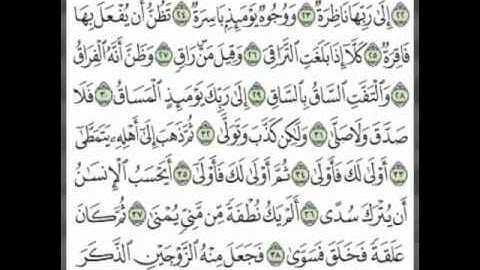 ٢٢ إِلَىٰ رَبِّهَا نَاظِرَةٌ ٢٣ وَوُجُوهٌ يَوْمَئِذٍ بَاسِرَةٌ ٢٤ تَظُنُّ أَن يُفْعَلَ بِهَا
فَاقِرَةٌ ٢٥ كَلَّا إِذَا بَلَغَتِ التَّرَاقِيَ ٢٦ وَقِيلَ مَنْ رَاقٍ ٢٧ وَظَنَّ أَنَّهُ الْفِرَاقُ
٢٨ وَالْتَفَّتِ السَّاقُ بِالسَّاقِ ٢٩ إِلَىٰ رَبِّكَ يَوْمَئِذٍ الْمَسَاقُ ٣٠ فَلَا
صَدَّقَ وَلَا صَلَّىٰ ٣١ وَلَٰكِن كَذَّبَ وَتَوَلَّىٰ ٣٢ ثُمَّ ذَهَبَ إِلَىٰ أَهْلِهِ يَتَمَطَّىٰ
٣٣ أَوْلَىٰ لَكَ فَأَوْلَىٰ ٣٤ ثُمَّ أَوْلَىٰ لَكَ فَأَوْلَىٰ ٣٥ أَيَحْسَبُ الْإِنسَانُ
أَن يُتْرَكَ سُدًى ٣٦ أَلَمْ يَكُ نُطْفَةً مِّن مَّنِيٍّ يُمْنَىٰ ٣٧ ثُمَّ كَانَ
عَلَقَةً فَخَلَقَ فَسَوَّىٰ ٣٨ فَجَعَلَ مِنْهُ الزَّوْجَيْنِ الذَّكَرَ